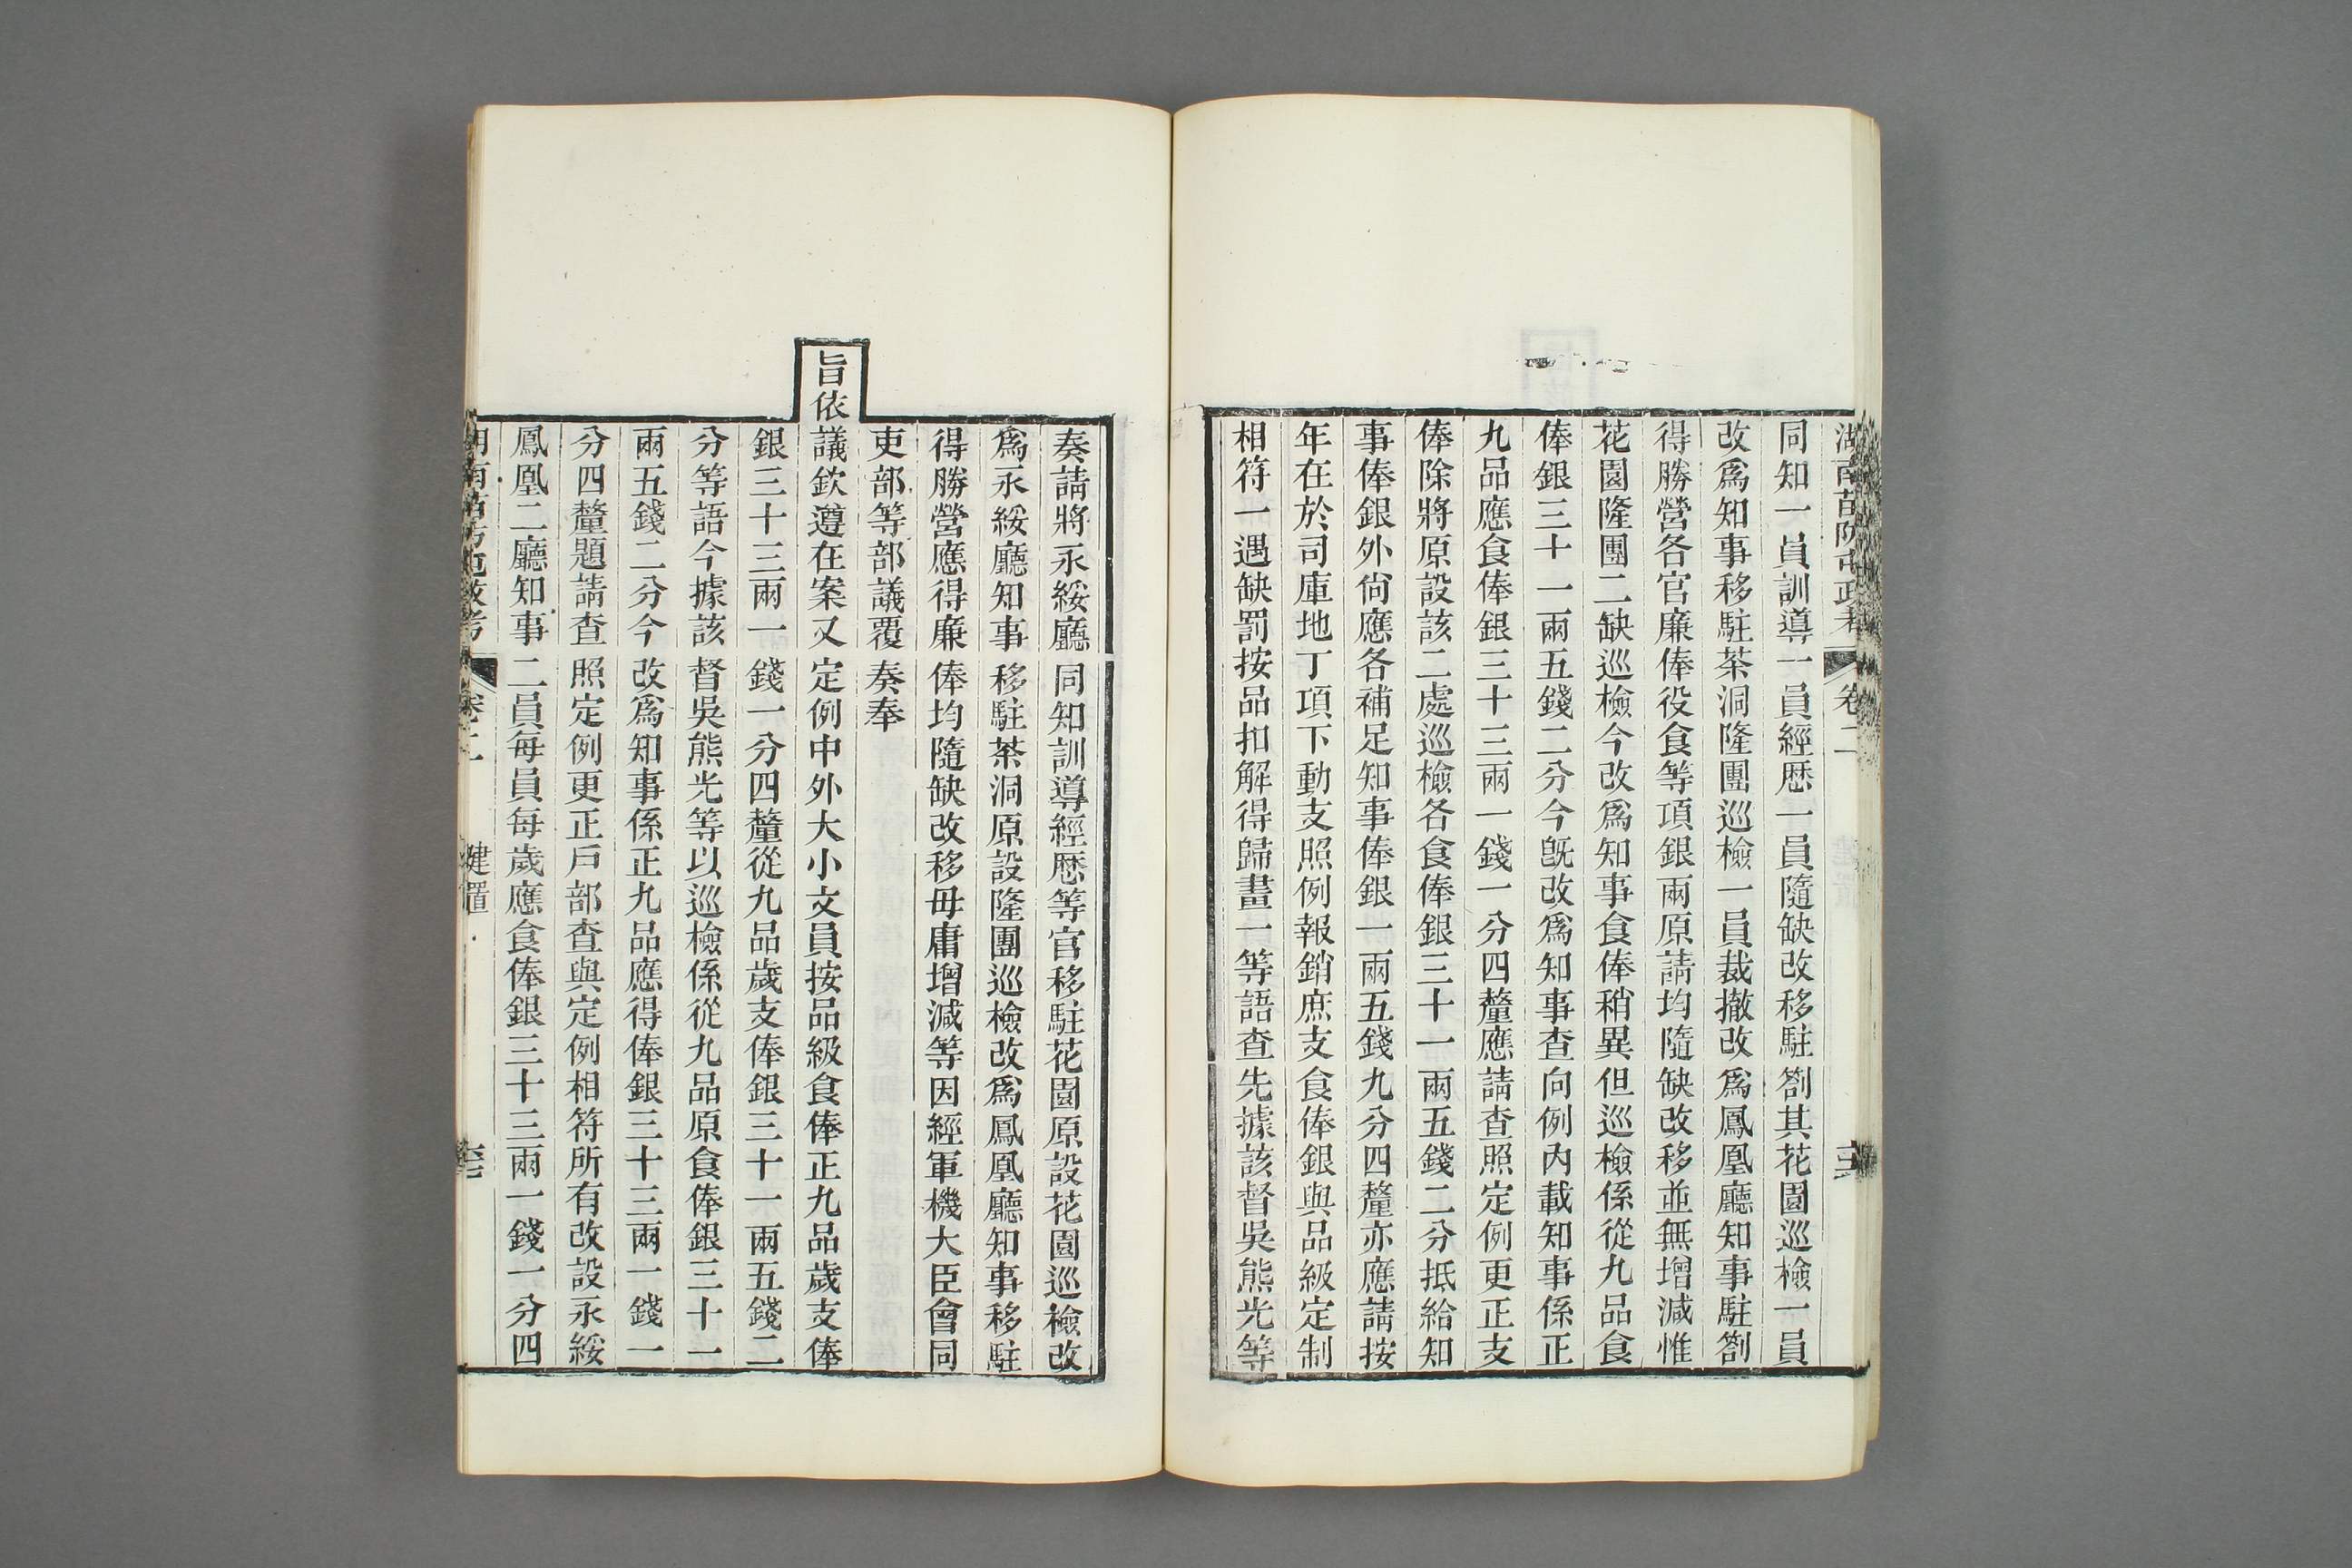 湖南苗防屯政考 卷二
同知一員訓導一員經歴一員隨缺改移駐劄其花園巡檢一員
改爲知事移駐茶洞隆團巡檢一員裁撤改爲鳳凰廳知事駐劄
得勝營各官廉俸役食等項銀兩原請均隨缺改移並無增減惟
花園隆團二缺巡檢今改爲知事食俸稍異但巡檢係從九品食
俸銀三十一兩五錢二分今既改爲知事查向例內載知事係正
九品應食俸銀三十三兩一錢一分四釐應請查照定例更正支
俸除將原設該二處巡檢各食俸銀三十一兩五錢二分抵給知
事俸銀外尙應各補足知事俸銀一兩五錢九分四釐亦應請按
年在於司庫地丁項下動支照例報銷庶支食俸銀與品級定制
相符一遇缺罰按品扣解得歸畫一等語查先據該督吳熊光等
奏請將永綏廳同知訓導經歴等官移駐花園原設花園巡檢改
爲永綏廳知事移駐茶洞原設隆團巡檢改爲鳳凰廳知事移駐
得勝營應得廉俸均隨缺改移毋庸增減等因經軍機大臣會同
吏部等部議覆奏奉
旨依議欽遵在案又定例中外大小文員按品級食俸正九品歲支俸
銀三十三兩一錢一分四釐從九品歲支俸銀三十一兩五錢二
分等語今據該督吳熊光等以巡檢係從九品原食俸銀三十一
兩五錢二分今改爲知事係正九品應得俸銀三十三兩一錢一
分四釐題請查照定例更正戶部查與定例相符所有改設永綏
鳳凰二廳知事二員每員每歲應食俸銀三十三兩一錢一分四
湖南苗防屯政考 卷二 建置